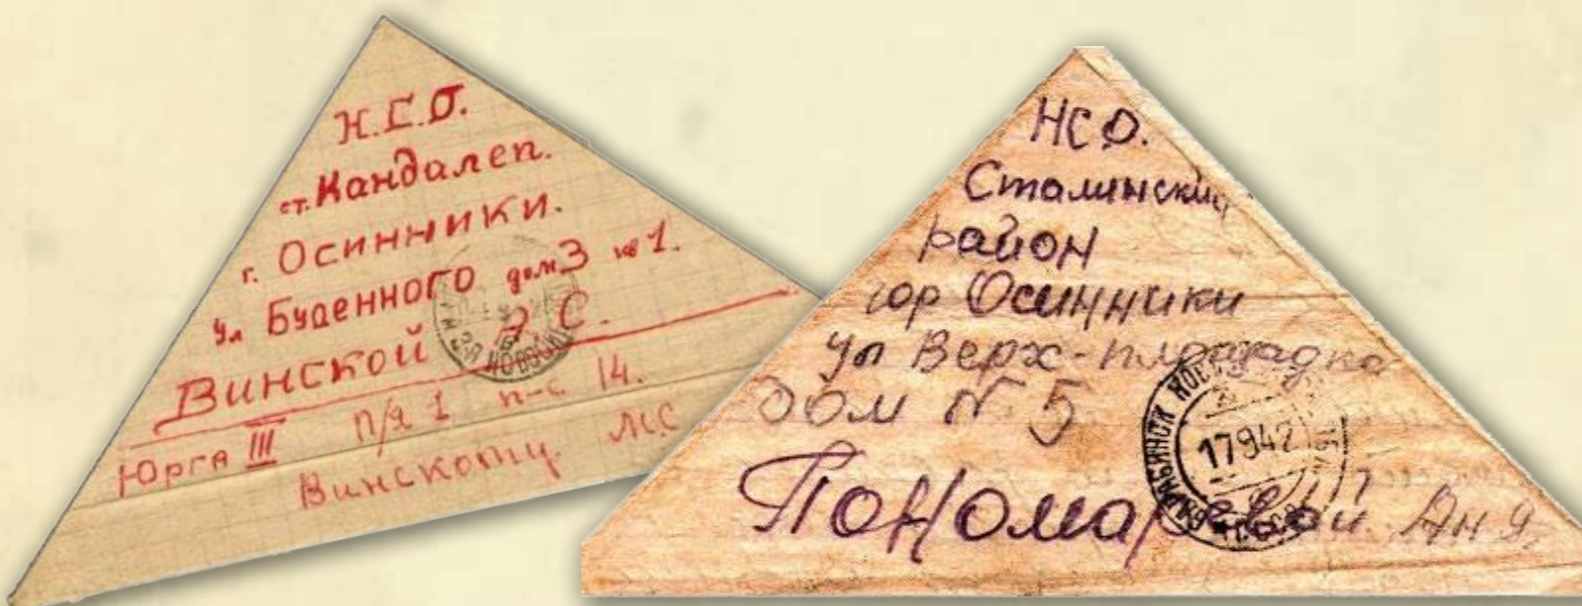 Н.С.О.
ст. Кандалеп.
г. Осинники.
ул Буденного дом 3 кв 1.
Винской З С.
Юрга III п/я 1 п-с 14.
Винскому. М.С
НСО.
Сталинский
район
гор Осинники
ул Верх-площадка
дом № 5
Пономаревой Ан Я
БАРАБИНСК
17 9 42